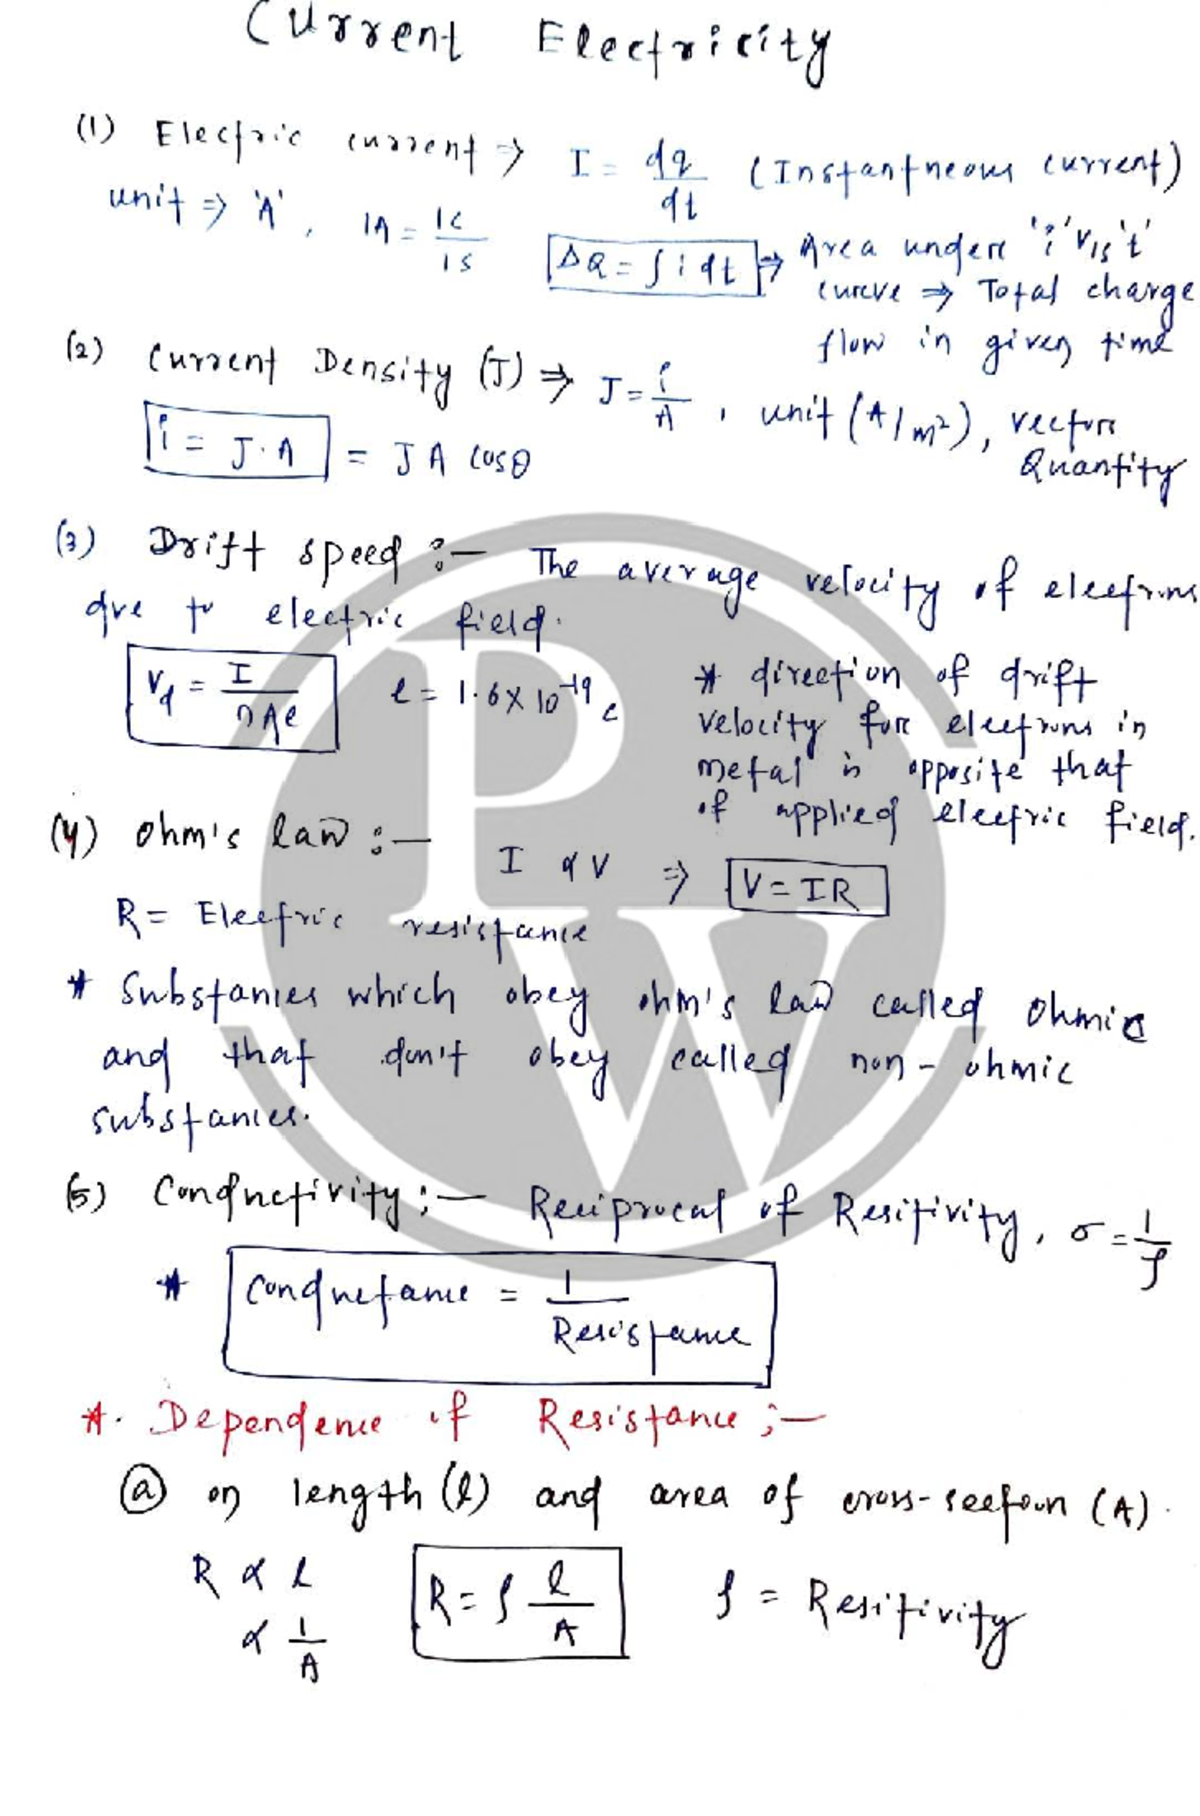 Current Electricity
(1) Electric current ⇒ I = dq/dt (Instantneous current)
unit ⇒ 'A', 1A = 1C/1S
ΔQ = ∫ i dt ⇒ Area under 'i' v/s 't'
curve ⇒ Total charge
flow in given time
(2) Current Density (J) ⇒ J = i/A, unit (A/m²), vector
Quantity
i = J·A = J A cosθ
(3) Drift speed :— The average velocity of electrons
due to electric field.
Vd = I/nAe e = 1.6 X 10⁻¹⁹ C
* direction of drift
velocity for electrons in
metal is opposite that
of applied electric field.
(4) Ohm's law :—
I α V ⇒ V = IR
R = Electric resistance
* Substances which obey ohm's law called ohmic
and that don't obey called non-ohmic
substances.
(5) Conductivity :— Reciprocal of Resitivity, σ = 1/ρ
* Conductance = 1/Resistance
*. Dependence of Resistance ;—
(a) on length (l) and area of cross-section (A).
R α l
α 1/A
R = ρ l/A
ρ = Resitivity
P
W